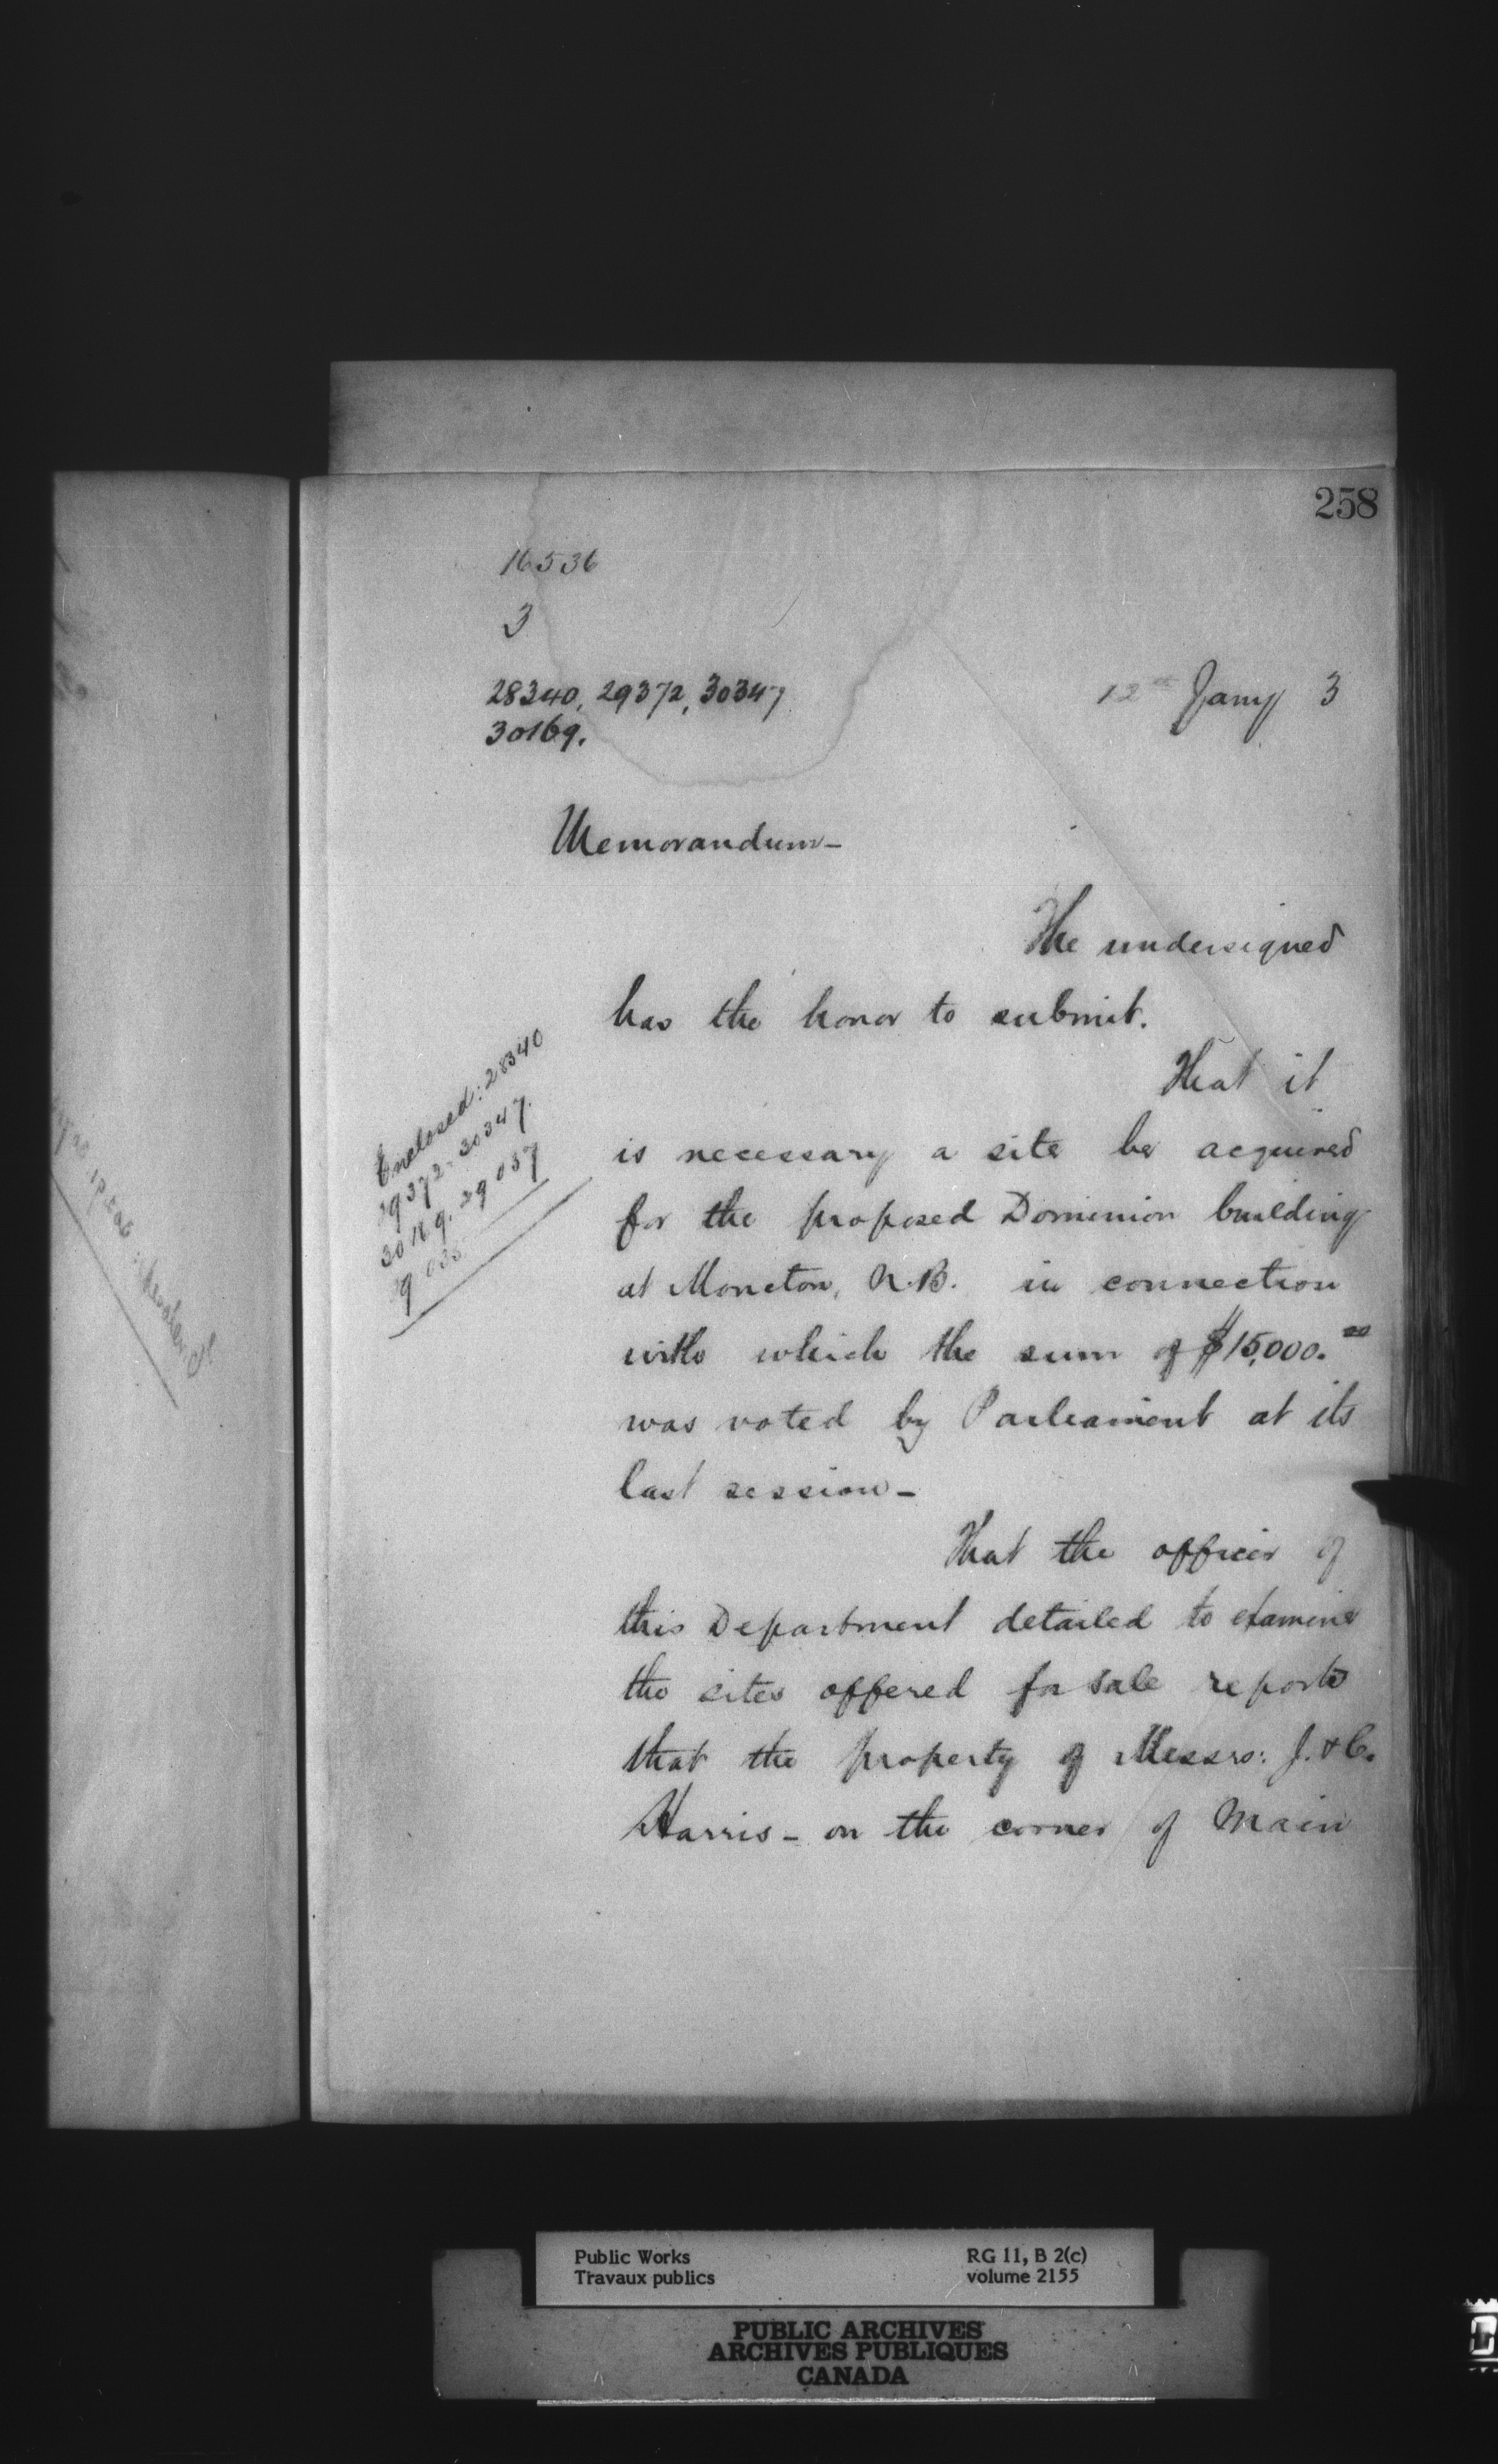 258
16536
3
28340, 29372, 30347
30169.
12th Jany 3
Memorandum-
The undersigned
has the honor to submit.
That it
is necessary a site be acquired
for the proposed Dominion building
at Moncton, N.B. in connection
with which the sum of $15,000.00
was voted by Parliament at its
last session-
That the officer of
this Department detailed to examine
the sites offered for sale reports
that the property of Messrs: J. & C.
Harris - on the corner of Main
Enclosed: 28340
29372-30347.
30169. 29037
Public Works
Travaux publics
RG 11, B 2(c)
volume 2155
PUBLIC ARCHIVES
ARCHIVES PUBLIQUES
CANADA